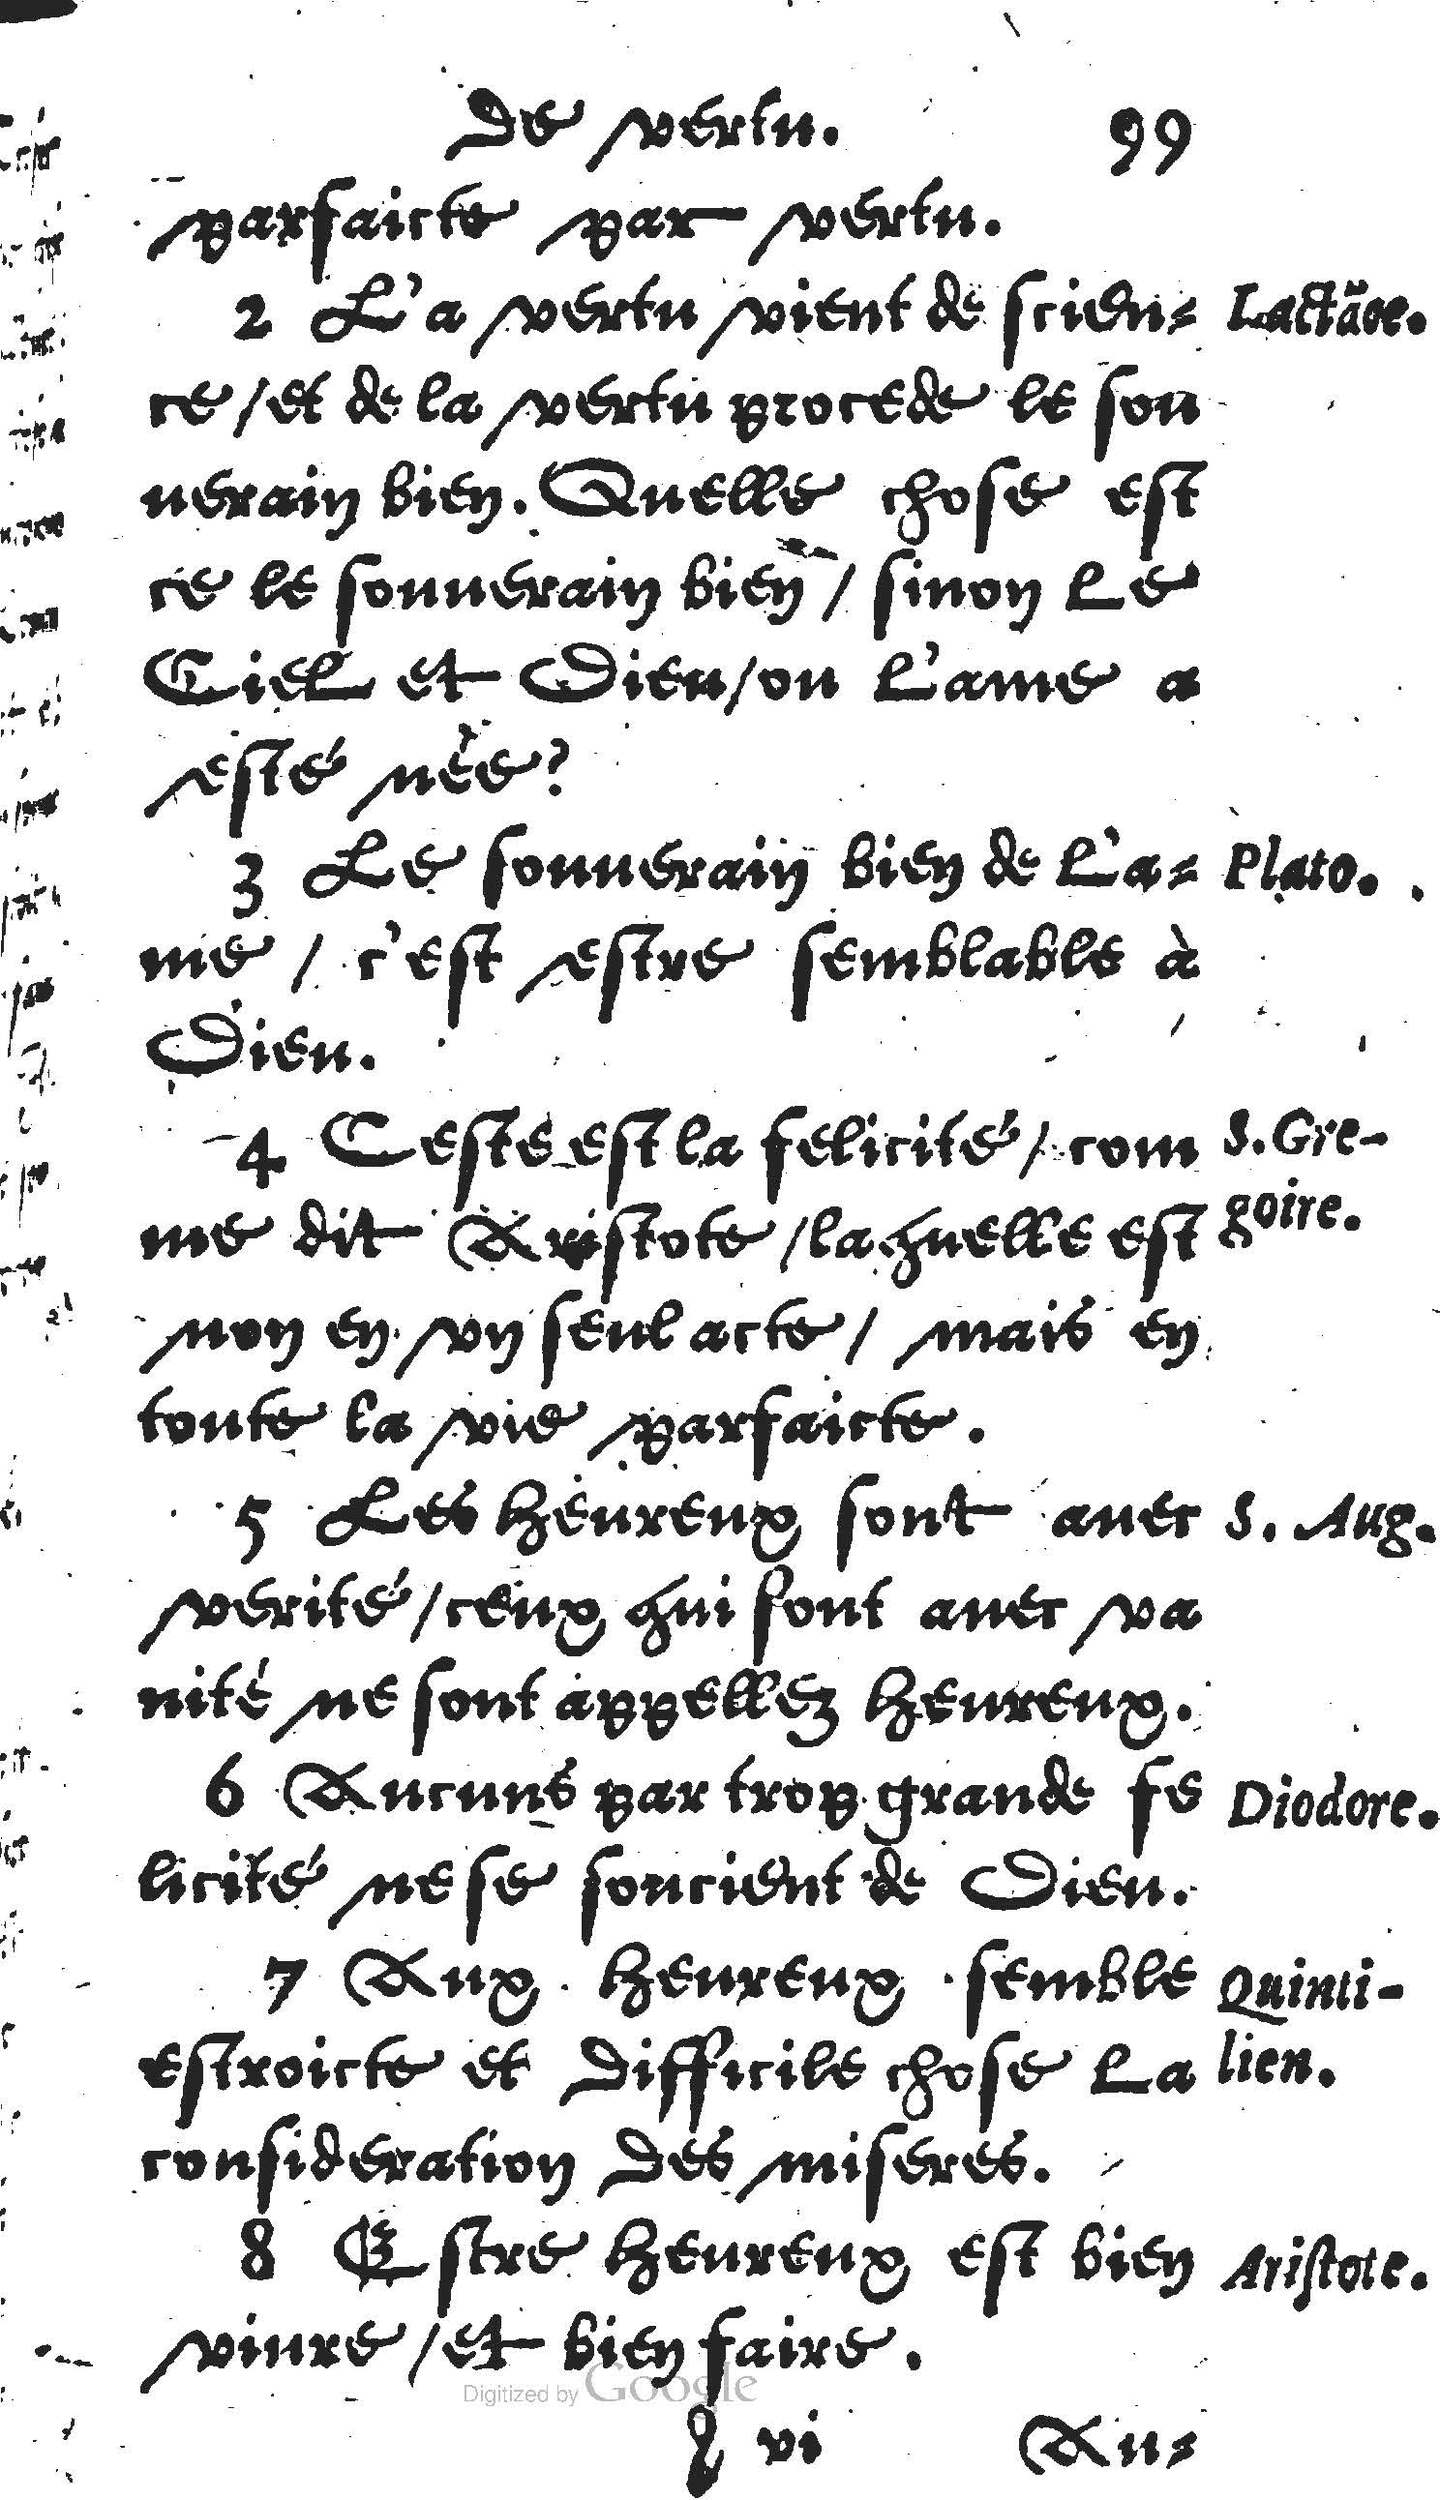 De vertu. 99
parfaicte par vertu.
2 L'a vertu vient de scien= Lactãce.
ce / et de la vertu procede le sou
uerain bien. Quelle chose est
ce le souuerain bien / sinon Le
Ciel et Dieu / ou L'ame a
esté née?
3 Le souuerain bien de L'a= Plato.
me / c'est estre semblable à
Dieu.
4 Ceste est la felicité / com S. Gre-
me dit Aristote / laquelle est goire.
non en vn seul acte / mais en
toute la vie parfaicte.
5 Les heureux sont auec S. Aug.
verité / ceux qui sont auec va
nité ne sont appellez heureux.
6 Aucuns par trop grande fe Diodore.
licité ne se soucient de Dieu.
7 Aux heureux semble Quinti-
estroicte et difficile chose La lien.
consideration des miseres.
8 Estre heureux est bien Aristote.
viure / et bien faire.
Digitized by Google
vi Au=